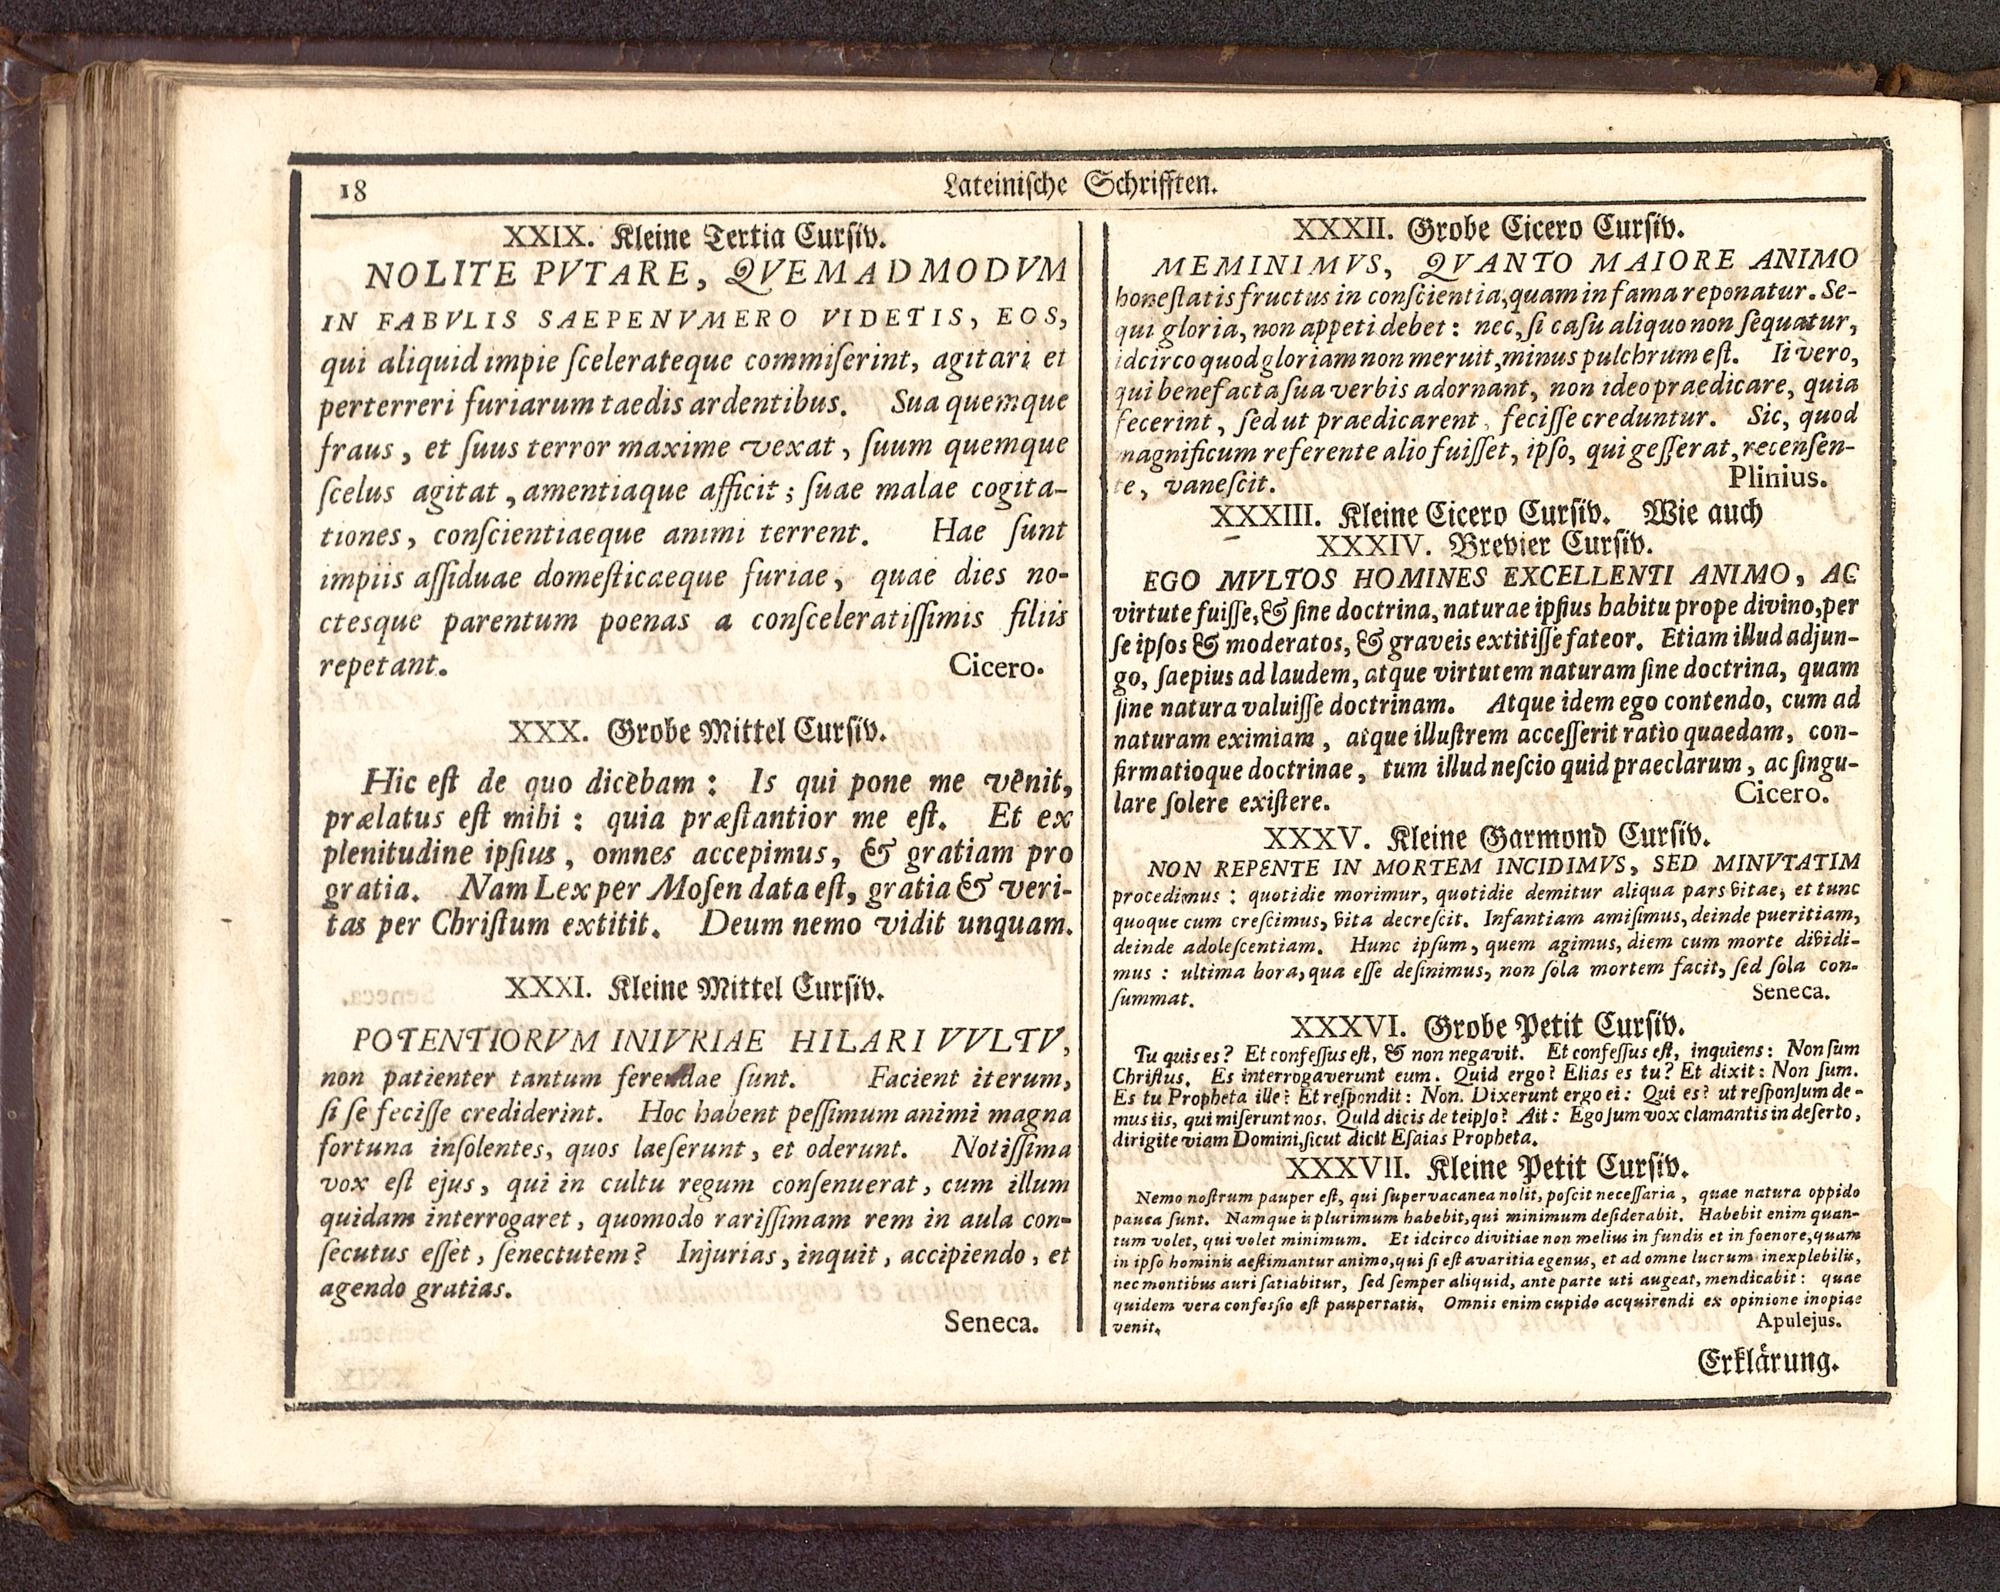 18
Lateinische Schrifften.
XXIX. Kleine Tertia Cursiv.
NOLITE PVTARE, QVEMADMODVM
IN FABVLIS SAEPENVMERO VIDETIS, EOS,
qui aliquid impie ſcelerateque commiſerint, agitari et
perterreri furiarum taedis ardentibus. Sua quemque
fraus, et ſuus terror maxime vexat, ſuum quemque
ſcelus agitat, amentiaque afficit; ſuae malae cogita-
tiones, conſcientiaeque animi terrent. Hae ſunt
impiis aſſiduae domeſticaeque furiae, quae dies no-
ctesque parentum poenas a conſceleratiſſimis filiis
repetant.
Cicero.
XXX. Grobe Mittel Cursiv.
Hic eſt de quo dicebam: Is qui pone me venit,
prælatus eſt mihi: quia præſtantior me eſt. Et ex
plenitudine ipſius, omnes accepimus, & gratiam pro
gratia. Nam Lex per Moſen data eſt, gratia & veri-
tas per Chriſtum extitit. Deum nemo vidit unquam.
XXXI. Kleine Mittel Cursiv.
POTENTIORVM INIVRIAE HILARI VVLTV,
non patienter tantum ferendae ſunt. Facient iterum,
ſi ſe feciſſe crediderint. Hoc habent peſſimum animi magna
fortuna inſolentes, quos laeſerunt, et oderunt. Notiſſima
vox eſt ejus, qui in cultu regum conſenuerat, cum illum
quidam interrogaret, quomodo rariſſimam rem in aula con-
ſecutus eſſet, ſenectutem? Injurias, inquit, accipiendo, et
agendo gratias.
Seneca.
XXXII. Grobe Cicero Cursiv.
MEMINIMVS, QVANTO MAIORE ANIMO
honeſtatis fructus in conſcientia, quam in fama reponatur. Se-
qui gloria, non appeti debet: nec, ſi caſu aliquo non ſequatur,
idcirco quod gloriam non meruit, minus pulchrum eſt. Ii vero,
qui benefacta ſua verbis adornant, non ideo praedicare, quia
fecerint, ſed ut praedicarent, feciſſe creduntur. Sic, quod
magnificum referente alio fuiſſet, ipſo, qui geſſerat, recenſen-
te, vaneſcit.
Plinius.
XXXIII. Kleine Cicero Cursiv. Wie auch
XXXIV. Brevier Cursiv.
EGO MVLTOS HOMINES EXCELLENTI ANIMO, AC
virtute fuiſſe, & ſine doctrina, naturae ipſius habitu prope divino, per
ſe ipſos & moderatos, & graveis extitiſſe fateor. Etiam illud adjun-
go, ſaepius ad laudem, atque virtutem naturam ſine doctrina, quam
ſine natura valuiſſe doctrinam. Atque idem ego contendo, cum ad
naturam eximiam, atque illuſtrem acceſſerit ratio quaedam, con-
firmatioque doctrinae, tum illud neſcio quid praeclarum, ac ſingu-
lare ſolere exiſtere.
Cicero.
XXXV. Kleine Garmond Cursiv.
NON REPENTE IN MORTEM INCIDIMVS, SED MINVTATIM
procedimus: quotidie morimur, quotidie demitur aliqua pars vitae, et tunc
quoque cum creſcimus, vita decreſcit. Infantiam amiſimus, deinde pueritiam,
deinde adoleſcentiam. Hunc ipſum, quem agimus, diem cum morte dividi-
mus: ultima hora, qua eſſe deſinimus, non ſola mortem facit, ſed ſola con-
ſummat.
Seneca.
XXXVI. Grobe Petit Cursiv.
Tu quis es? Et confeſſus eſt, & non negavit. Et confeſſus eſt, inquiens: Non ſum
Chriſtus. Es interrogaverunt eum. Quid ergo? Elias es tu? Et dixit: Non ſum.
Es tu Propheta ille? Et reſpondit: Non. Dixerunt ergo ei: Qui es? ut reſponſum de-
mus iis, qui miſerunt nos. Quid dicis de teipſo? Ait: Ego ſum vox clamantis in deſerto,
dirigite viam Domini, ſicut dicit Eſaias Propheta.
XXXVII. Kleine Petit Cursiv.
Nemo noſtrum pauper eſt, qui ſupervacanea nolit, poſcit neceſſaria, quae natura oppido
pauca ſunt. Namque is plurimum habebit, qui minimum deſiderabit. Habebit enim quan-
tum volet, qui volet minimum. Et idcirco divitiae non melius in fundis et in foenore, quam
in ipſo hominis aeſtimantur animo, qui ſi eſt avaritia egenus, et ad omne lucrum inexplebilis,
nec montibus auri ſatiabitur, ſed ſemper aliquid, ante parte uti augeat, mendicabit: quae
quidem vera confeſſio eſt paupertatis. Omnis enim cupido acquirendi ex opinione inopiae
venit.
Apulejus.
Erklärung.